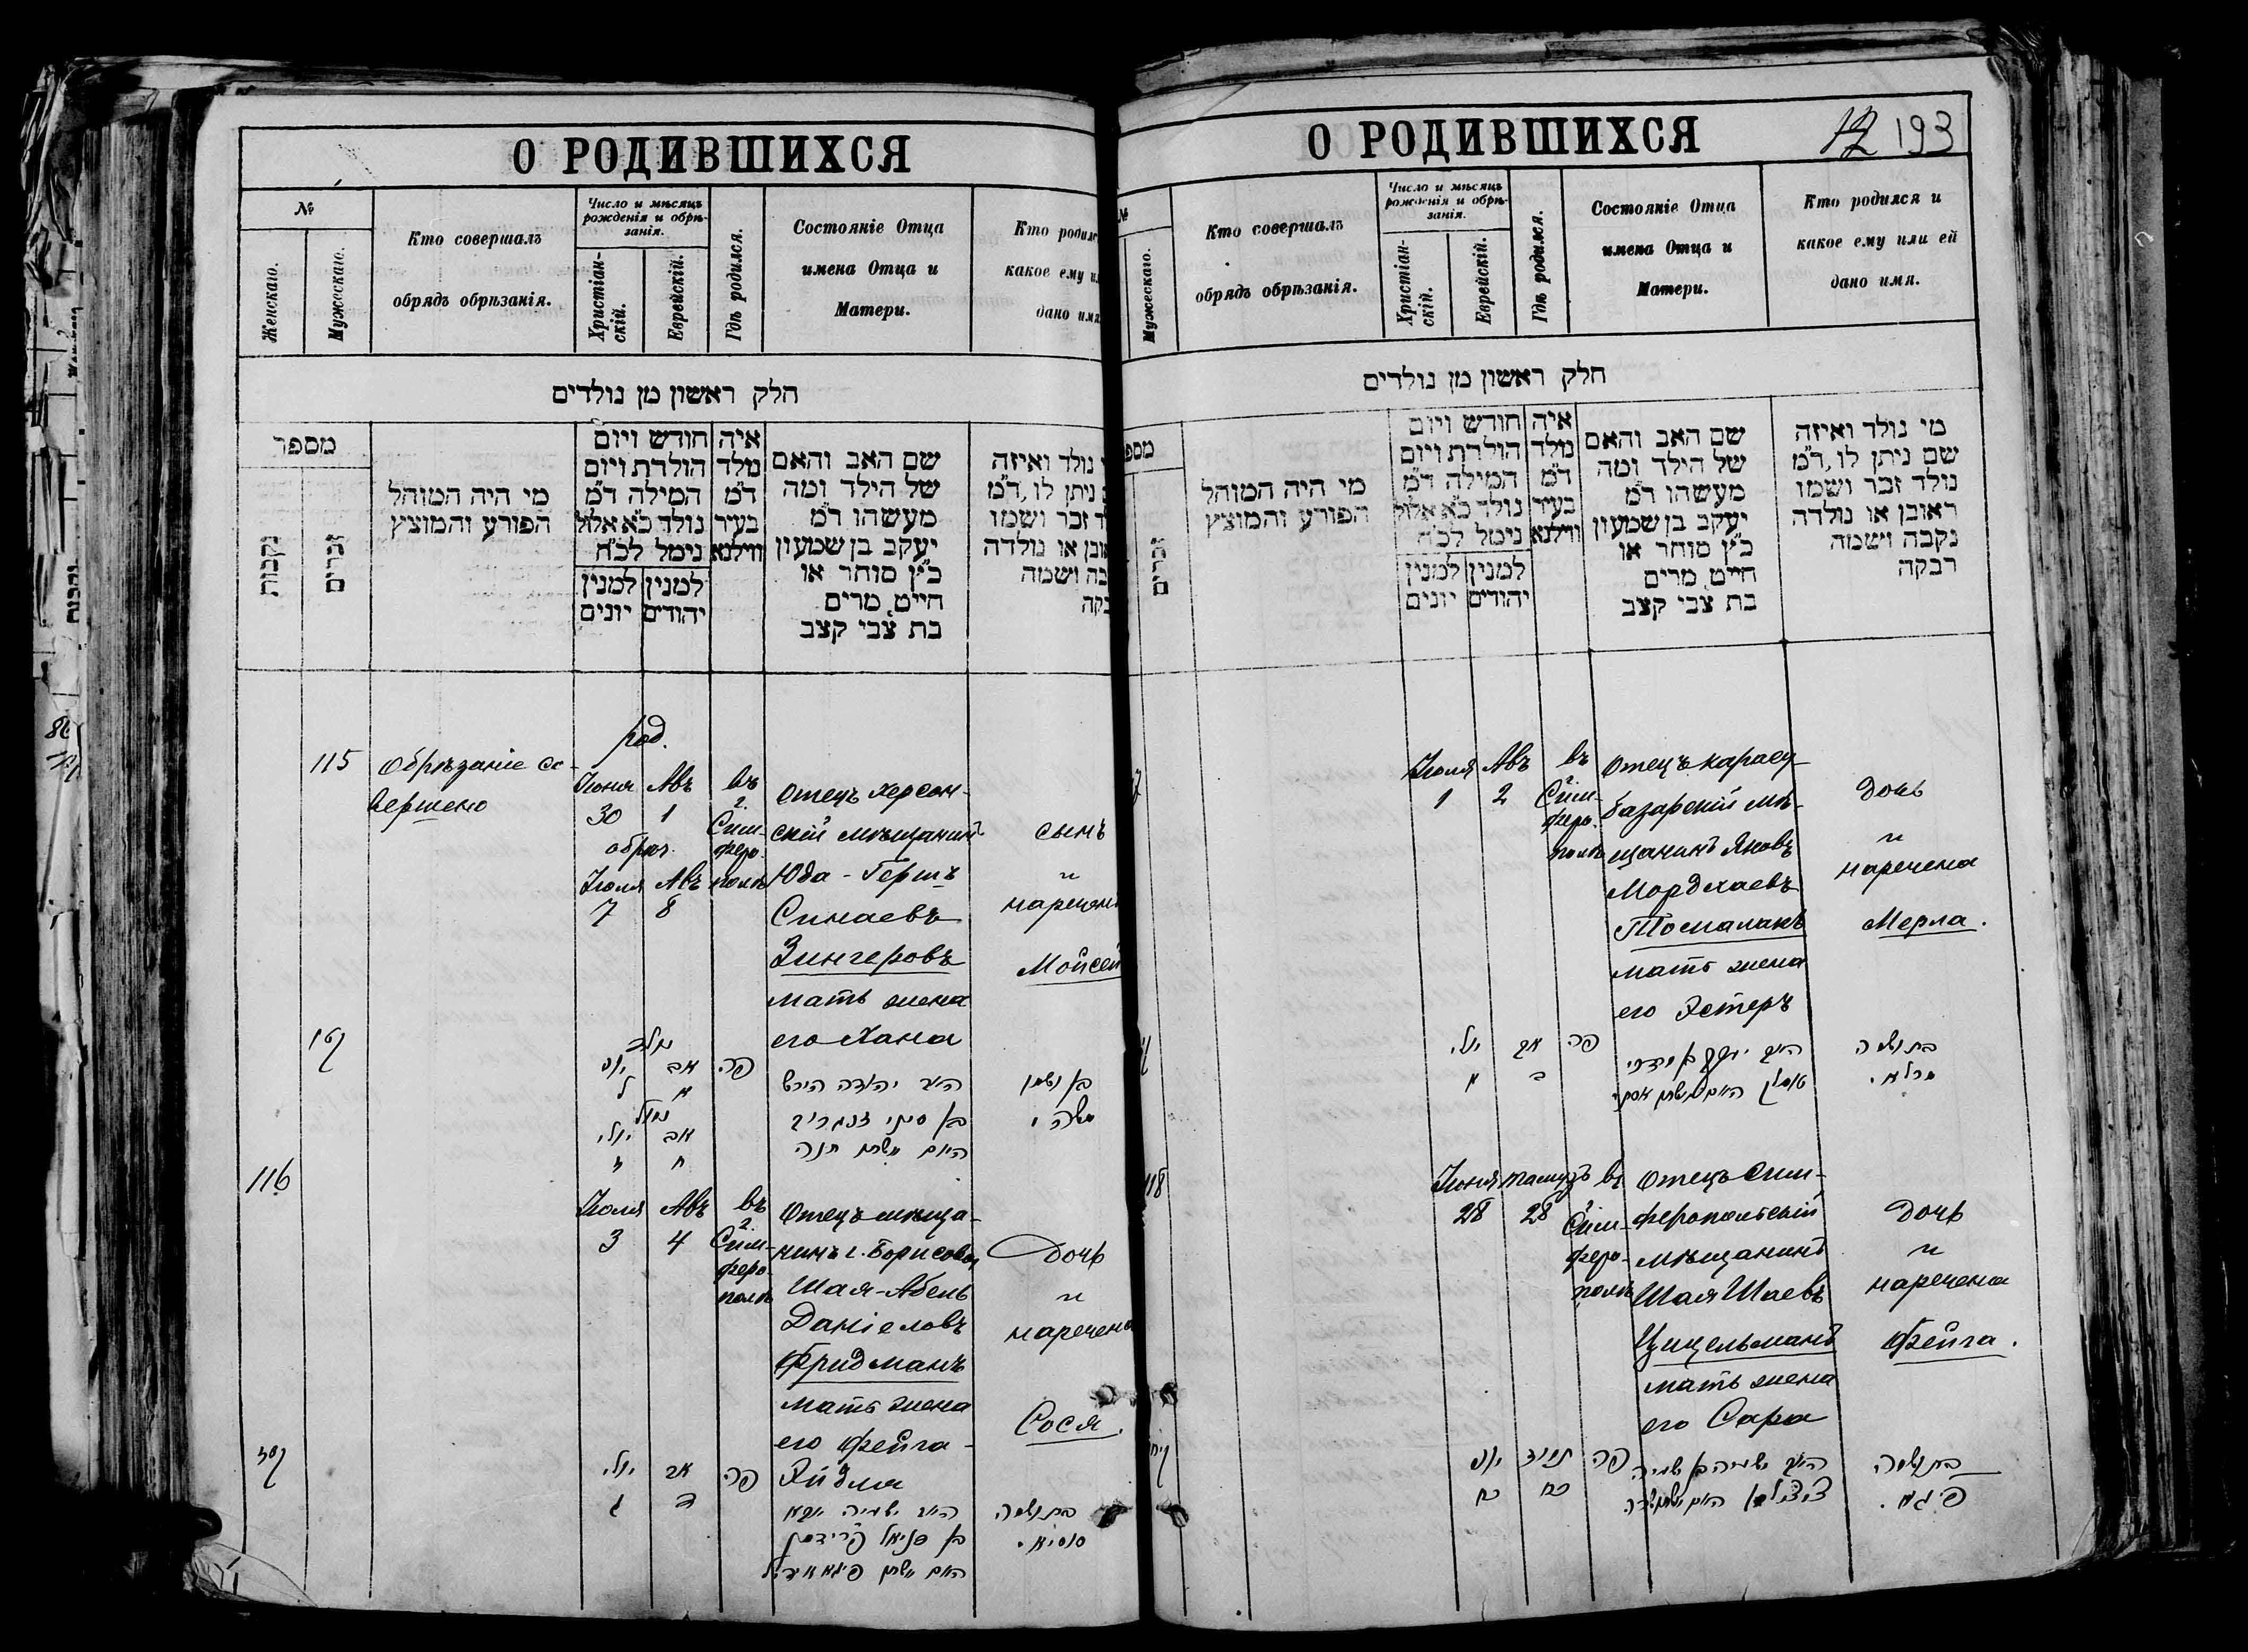 О РОДИВШИХСЯ
№
Женскаго.
Мужескаго.
Кто совершалъ
обрядъ обрѣзанія.
Число и мѣсяцъ
рожденія и обрѣ-
занія.
Христіан-
скій.
Еврейскій.
Гдѣ родился.
Состояніе Отца
имена Отца и
Матери.
Кто родилс
какое ему и
дано имя
חלק ראשון מן נולדים
מספר
נקבות
זכרים
מי היה המוהל
הפורע והמוצץ
חודש ויום
הולדת ויום
המילה ד״מ
נולד כ״א אלול
נימל לכ״ח
למנין יונים
למנין יהודים
איה
נולד
ד״מ
בעיר
ווילנא
שם האב והאם
של הילד ומה
מעשהו ד״מ
יעקב בן שמעון
כ״ץ סוחר או
חייט, מרים
בת צבי קצב
נולד ואיזה
ניתן לו, ד״מ
ד זכר ושמו
ובן או נולדה
בה ושמה
בקה
115
Обрѣзаніе со-
вершено
род.
Іюня 30
Авъ 1
обрѣз.
Іюля 7
Авъ 8
въ
г.
Сим-
феро-
полѣ
отецъ херсон-
скій мѣщанинъ
Юда-Гершъ
Синаевъ
Зингеровъ
мать жена
его Хана
сынъ
и
нареченъ
Мойсей
נולד
יוני
אב
ל
א
נימול
יולי
אב
ז
ח
פה
האב יהודה הירש
בן סיני זינגעריוו
האם אשתו חנה
בן ושמו
משה
116
Іюля 3
Авъ 4
въ
г.
Сим-
феро-
полѣ
отецъ мѣща-
нинъ г. Борисова
Шая-Абель
Даніеловъ
Фридманъ
мать жена
его Фейга-
Эйдля
дочь
и
наречена
Сося.
יולי
אב
פה
ג
ד
בן דניאל פרידמן
בת ושמה
סוסיא.
О РОДИВШИХСЯ
12 193
№
Мужескаго.
Кто совершалъ
обрядъ обрѣзанія.
Число и мѣсяцъ
рожденія и обрѣ-
занія.
Христіан-
скій.
Еврейскій.
Гдѣ родился.
Состояніе Отца
имена Отца и
Матери.
Кто родился и
какое ему или ей
дано имя.
חלק ראשון מן נולדים
מספ
זכרים
מי היה המוהל
הפורע והמוצץ
חודש ויום
הולדת ויום
המילה ד״מ
נולד כ״א אלול
נימל לכ״ח
למנין יונים
למנין יהודים
איה
נולד
ד״מ
בעיר
ווילנא
שם האב והאם
של הילד ומה
מעשהו ד״מ
יעקב בן שמעון
כ״ץ סוחר או
חייט, מרים
בת צבי קצב
מי נולד ואיזה
שם ניתן לו, ד״מ
נולד זכר ושמו
ראובן או נולדה
נקבה ושמה
רבקה
7
Іюля 1
Авъ 2
въ
г.
Сим-
феро-
полѣ
отецъ карасу-
базарскій мѣ-
щанинъ Яковъ
Мордхаевъ
Томалакъ
мать жена
его Эстеръ
дочь
и
наречена
Мерла.
יולי
אב
פה
א
ב
בת ושמה
מרלא.
118
Іюня 28
Тамузъ 28
въ
г.
Сим-
феро-
полѣ
отецъ Сим-
феропольскій
мѣщанинъ
Шая Шаевъ
Цицельманъ
мать жена
его Сара
дочь
и
наречена
Фейга.
יוני
תמוז
פה
כח
כח
האב ישעיה בן ישעיה
ציצילמן האם אשתו שרה
בת ושמה
פיגא.